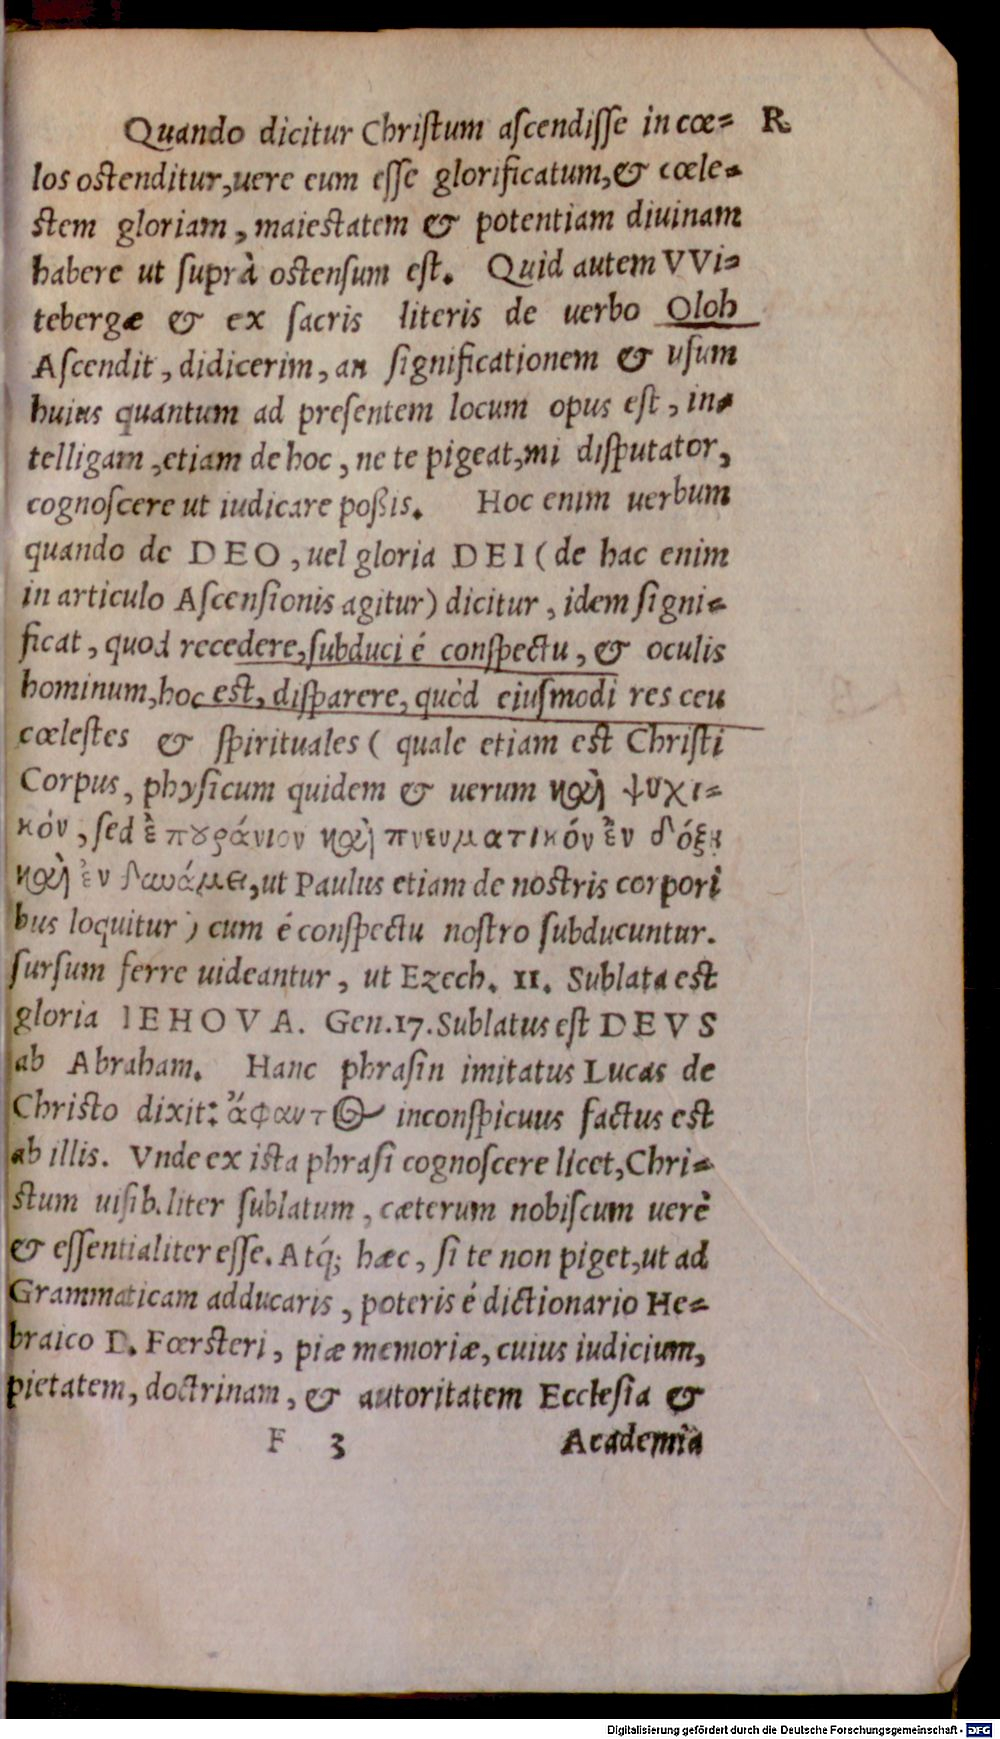 Quando dicitur Christum ascendisse in cœ= R
los ostenditur, uere eum esse glorificatum, & cœle=
stem gloriam, maiestatem & potentiam diuinam
habere ut suprà ostensum est. Quid autem VVi=
tebergæ & ex sacris literis de uerbo Oloh
Ascendit, didicerim, an significationem & usum
huius quantum ad presentem locum opus est, in=
telligam, etiam de hoc, ne te pigeat, mi disputator,
cognoscere ut iudicare poßis. Hoc enim uerbum
quando de DEO, uel gloria DEI (de hac enim
in articulo Ascensionis agitur) dicitur, idem signi=
ficat, quod recedere, subduci é conspectu, & oculis
hominum, hoc est, disparere, quòd eiusmodi res ceu
cœlestes & spirituales ( quale etiam est Christi
Corpus, physicum quidem & uerum καὶ ψυχι=
κόν, sed ἐπουράνιον καὶ πνευματικόν ἐν δόξῃ
καὶ ἐν δυνάμει, ut Paulus etiam de nostris corpori
bus loquitur ) cum é conspectu nostro subducuntur.
sursum ferre uideantur, ut Ezech. 11. Sublata est
gloria IEHOVA. Gen. 17. Sublatus est DEVS
ab Abraham. Hanc phrasin imitatus Lucas de
Christo dixit: ἄφαντος inconspicuus factus est
ab illis. Vnde ex ista phrasi cognoscere licet, Chri=
stum uisib.liter sublatum, cæterum nobiscum uerè
& essentialiter esse. Atq́; hæc, si te non piget, ut ad
Grammaticam adducaris, poteris é dictionario He=
braico D. Fœrsteri, piæ memoriæ, cuius iudicium,
pietatem, doctrinam, & autoritatem Ecclesia &
F 3 Academia
Digitalisierung gefördert durch die Deutsche Forschungsgemeinschaft - DFG